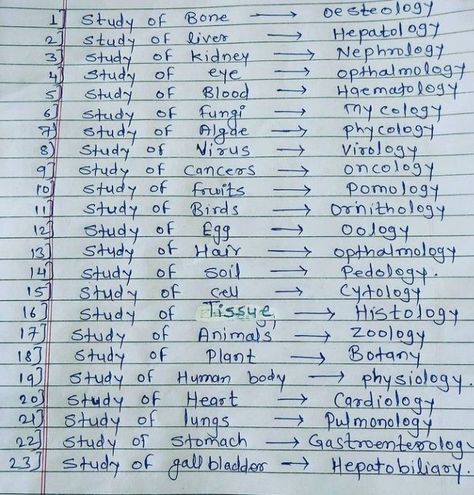 1] Study of Bone → Oesteology
2] Study of liver → Hepatology
3] Study of kidney → Nephrology
4] Study of eye → opthalmology
5] Study of Blood → Haematology
6] Study of fungi → Mycology
7] Study of Algae → phycology
8) Study of Virus → Virology
9] Study of Cancers → oncology
10] Study of fruits → Pomology
11] Study of Birds → Ornithology
12] Study of Egg → Oology
13] Study of Hair → opthalmology
14] Study of Soil → Pedology.
15] Study of Cell → Cytology
16] Study of Tissue → Histology
17] Study of Animals → Zoology
18] Study of Plant → Botany
19] Study of Human body → physiology
20] Study of Heart → Cardiology
21] Study of lungs → Pulmonology
22] Study of Stomach → Gastroenterology
23] Study of gallbladder → Hepatobiliary.